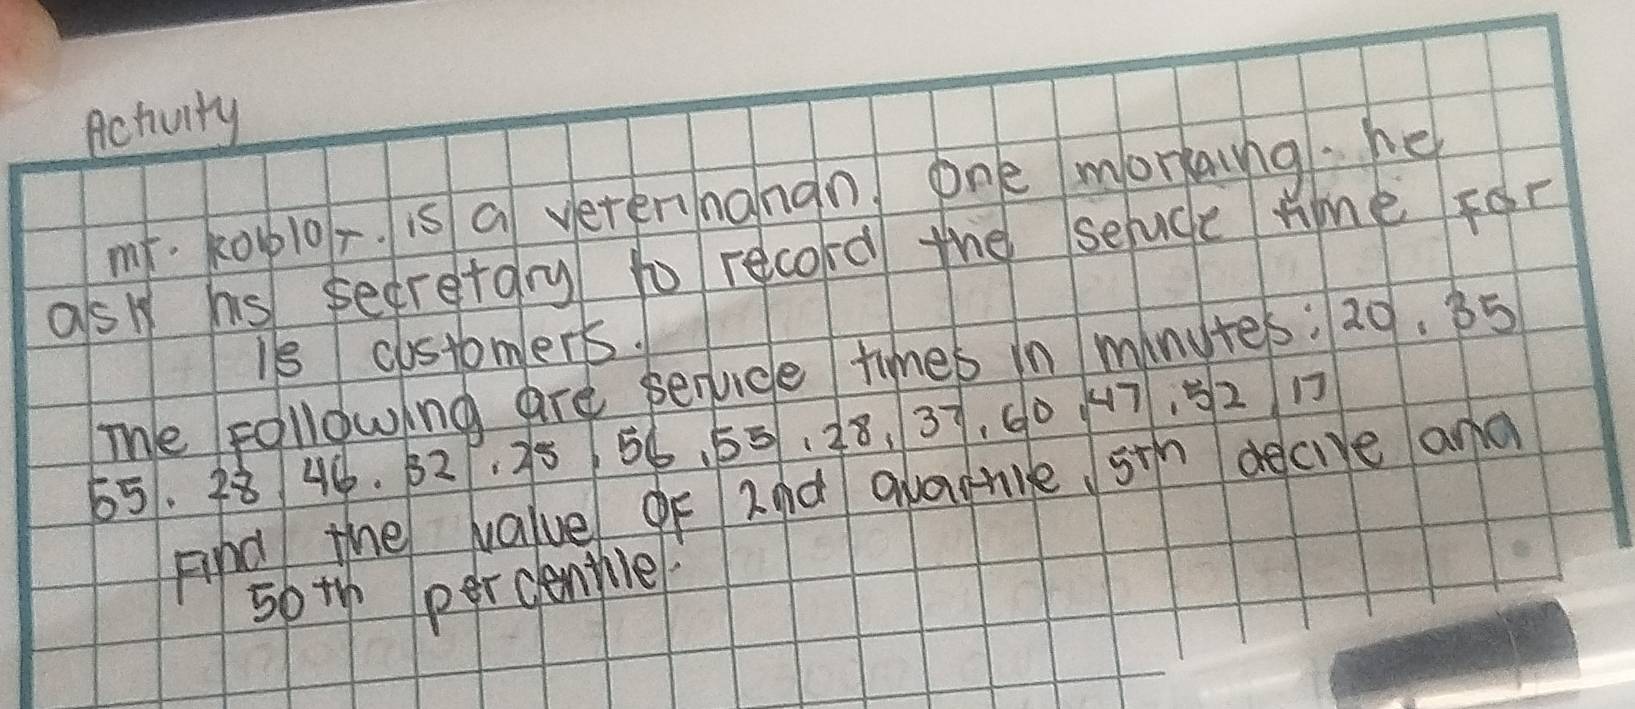 Activity
mr. koblor. is a veterinarian. one morkaing. he
ask his secretary to record the service time for
15 customers.
The following are service times in minutes: 20, 35
55. 28, 46. 32, 25, 56, 55, 28, 37, 60, 47, 52, 17
Find the value of 2nd quartile, 5th decile and
50th percentile.